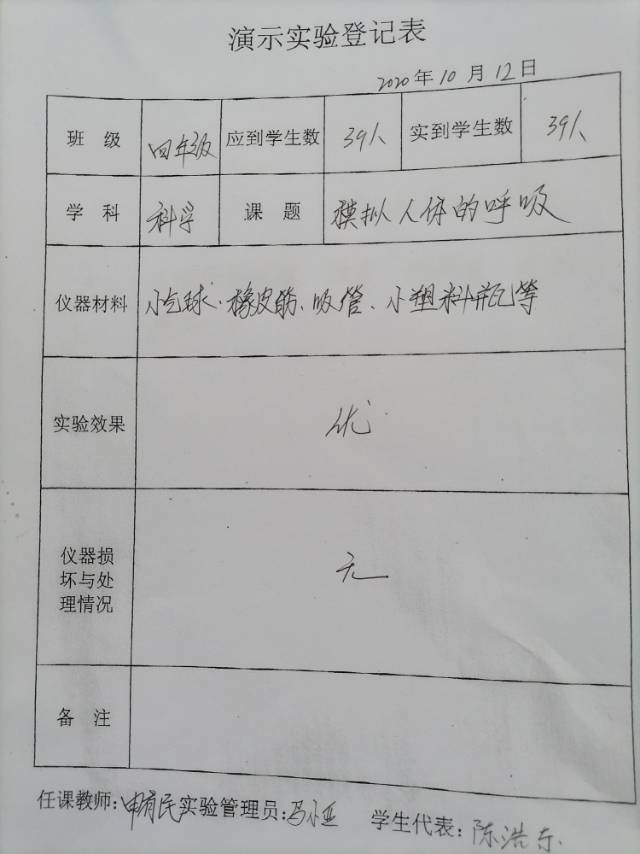 演示实验登记表
2020年10月12日
班级 四年级 应到学生数 39人 实到学生数 39人
学科 科学 课题 模拟人体的呼吸
仪器材料 小气球、橡皮筋、吸管、小塑料瓶等
实验效果 优
仪器损
坏与处
理情况
无
备注
任课教师:申有民实验管理员:冯小亚 学生代表:陈浩东